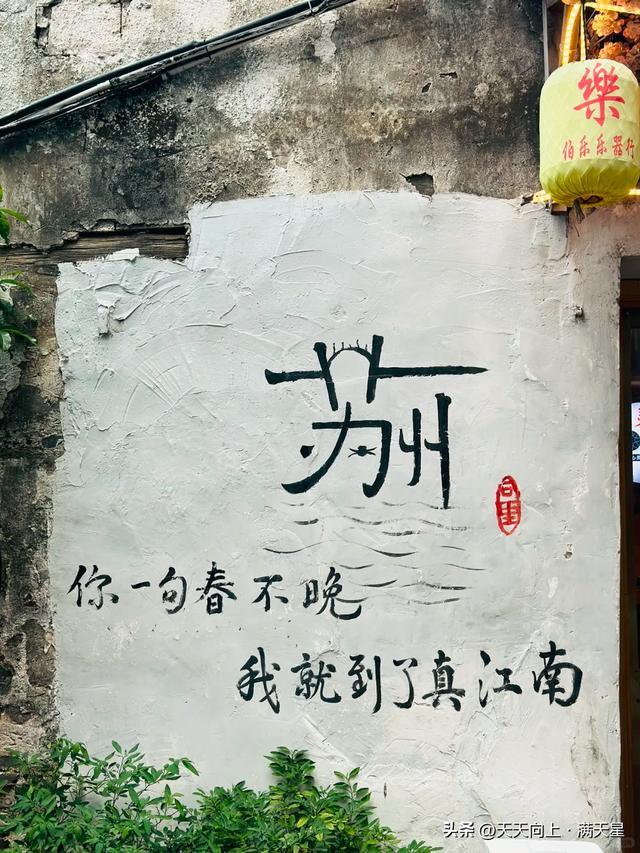 樂
伯乐乐器行
苏州
同里
你一句春不晚
我就到了真江南
头条 @天天向上·满天星